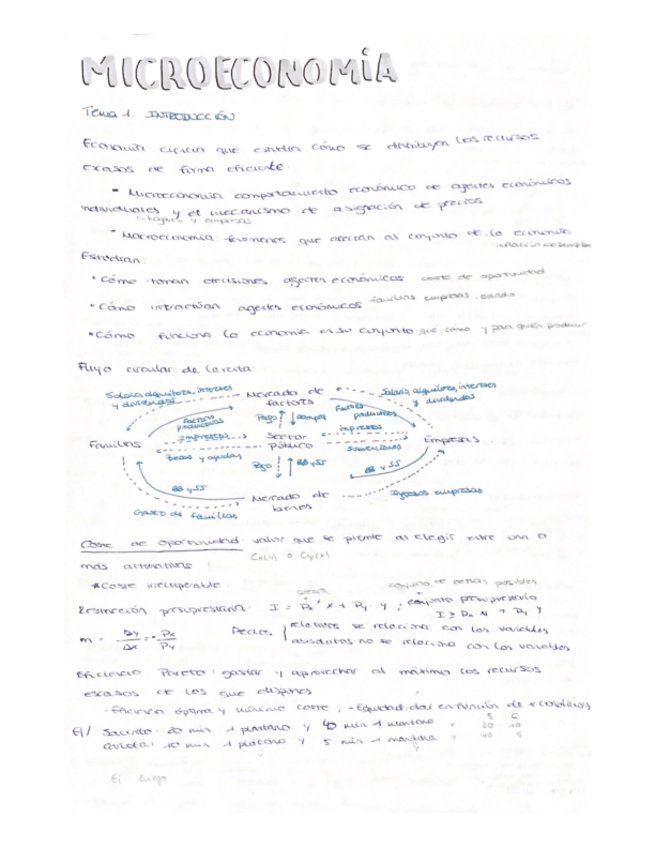 MICROECONOMÍA
Tema 1. INTRODUCCIÓN
Economía ciencia que estudia cómo se distribuyen los recursos
escasos de forma eficiente.
- Microeconomía comportamiento económico de agentes económicos
individuales y el mecanismo de asignación de precios
hogares y empresas
- Macroeconomía: fenómenos que afectan al conjunto de la economía
inflación desempleo
Estudian:
• Cómo toman decisiones agentes económicos coste de oportunidad
• Cómo interactúan agentes económicos familias empresas estado
• Cómo funciona la economía en su conjunto qué, cómo y para quién producir
Flujo circular de la renta:
Salario, alquileres, intereses y dividendos
Mercado de factores
Salario, alquileres, intereses y dividendos
Factores productivos
Pago
Factores productivos
Impuestos
Impuestos
Familias
Sector público
Empresas
Becas y ayudas
Subvenciones
Pago
BB y SS
BB y SS
BB y SS
Mercado de bienes
Gasto de familias
Ingresos empresas
Coste de oportunidad: valor que se pierde al elegir entre una o
más alternativas
C(x) o Cy(x)
*Coste irrecuperable
conjunto de cestas posibles
Restricción presupuestaria: I = Px · X + Py · Y ; conjunto presupuestario
I ≥ Px X + Py Y
m = Δy/Δx = - Px/Py
Precios
relativos se relaciona con las variables
absolutos no se relaciona con las variables
Eficiencia Pareto: gastar y aprovechar al máximo los recursos
escasos de los que dispones
- Eficiencia óptima y mínimo coste, - Equidad: dar en función de condiciones
Ej/ 20 min 1 plátano y 40 min 1 manzana
10 min 1 plátano y 5 min 1 manzana